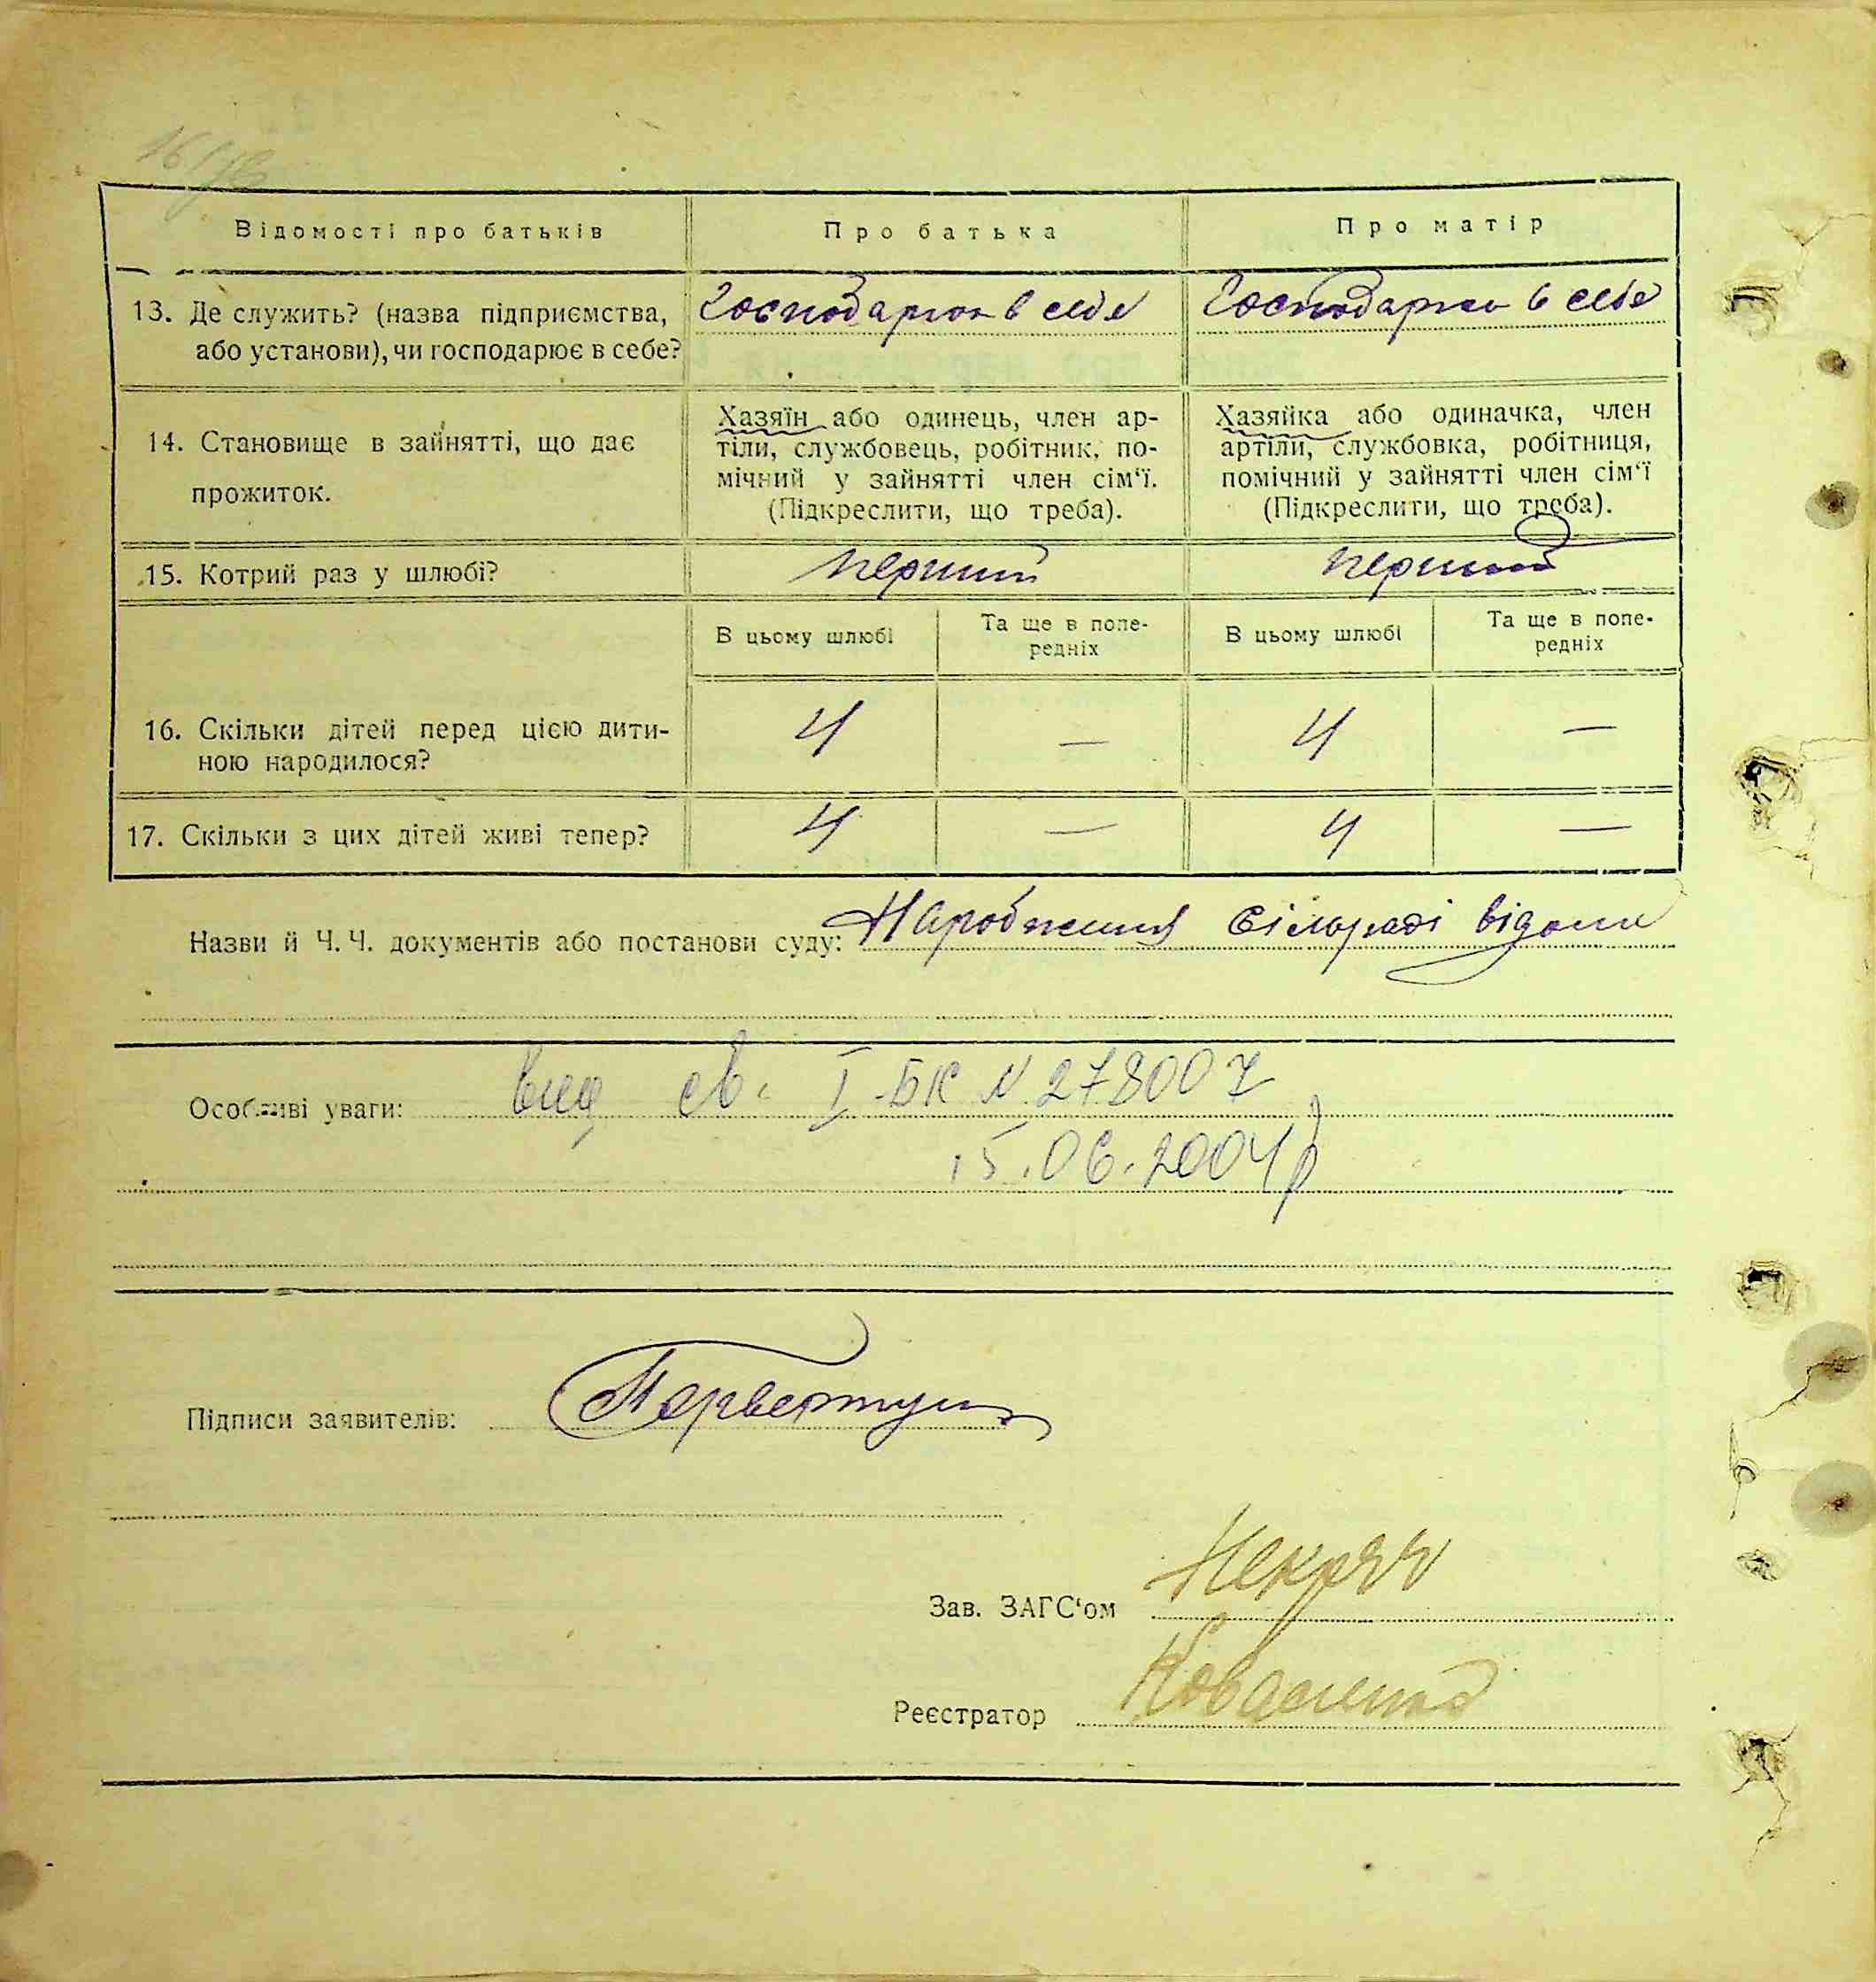 Відомості про батьків
Про батька
Про матір
13. Де служить? (назва підприємства, або установи), чи господарює в себе?
Господарює в себе
Господарює в себе
14. Становище в зайнятті, що дає прожиток.
Хазяїн або одинець, член ар-
тіли, службовець, робітник, по-
мічний у зайнятті член сім‘ї.
(Підкреслити, що треба).
Хазяйка або одиначка, член
артіли, службовка, робітниця,
помічний у зайнятті член сім‘ї
(Підкреслити, що треба).
15. Котрий раз у шлюбі?
перший
перший
В цьому шлюбі
Та ще в попе-
редніх
В цьому шлюбі
Та ще в попе-
редніх
16. Скільки дітей перед цією дити-
ною народилося?
4 — 4 —
17. Скільки з цих дітей живі тепер?
4 — 4 —
Назви й Ч. Ч. документів або постанови суду: Народження сільраді відоме
Особливі уваги: вид св. I-БК N 278007
15.06.2004р
Підписи заявителів:
Зав. ЗАГС‘ом
Реєстратор Коваленко